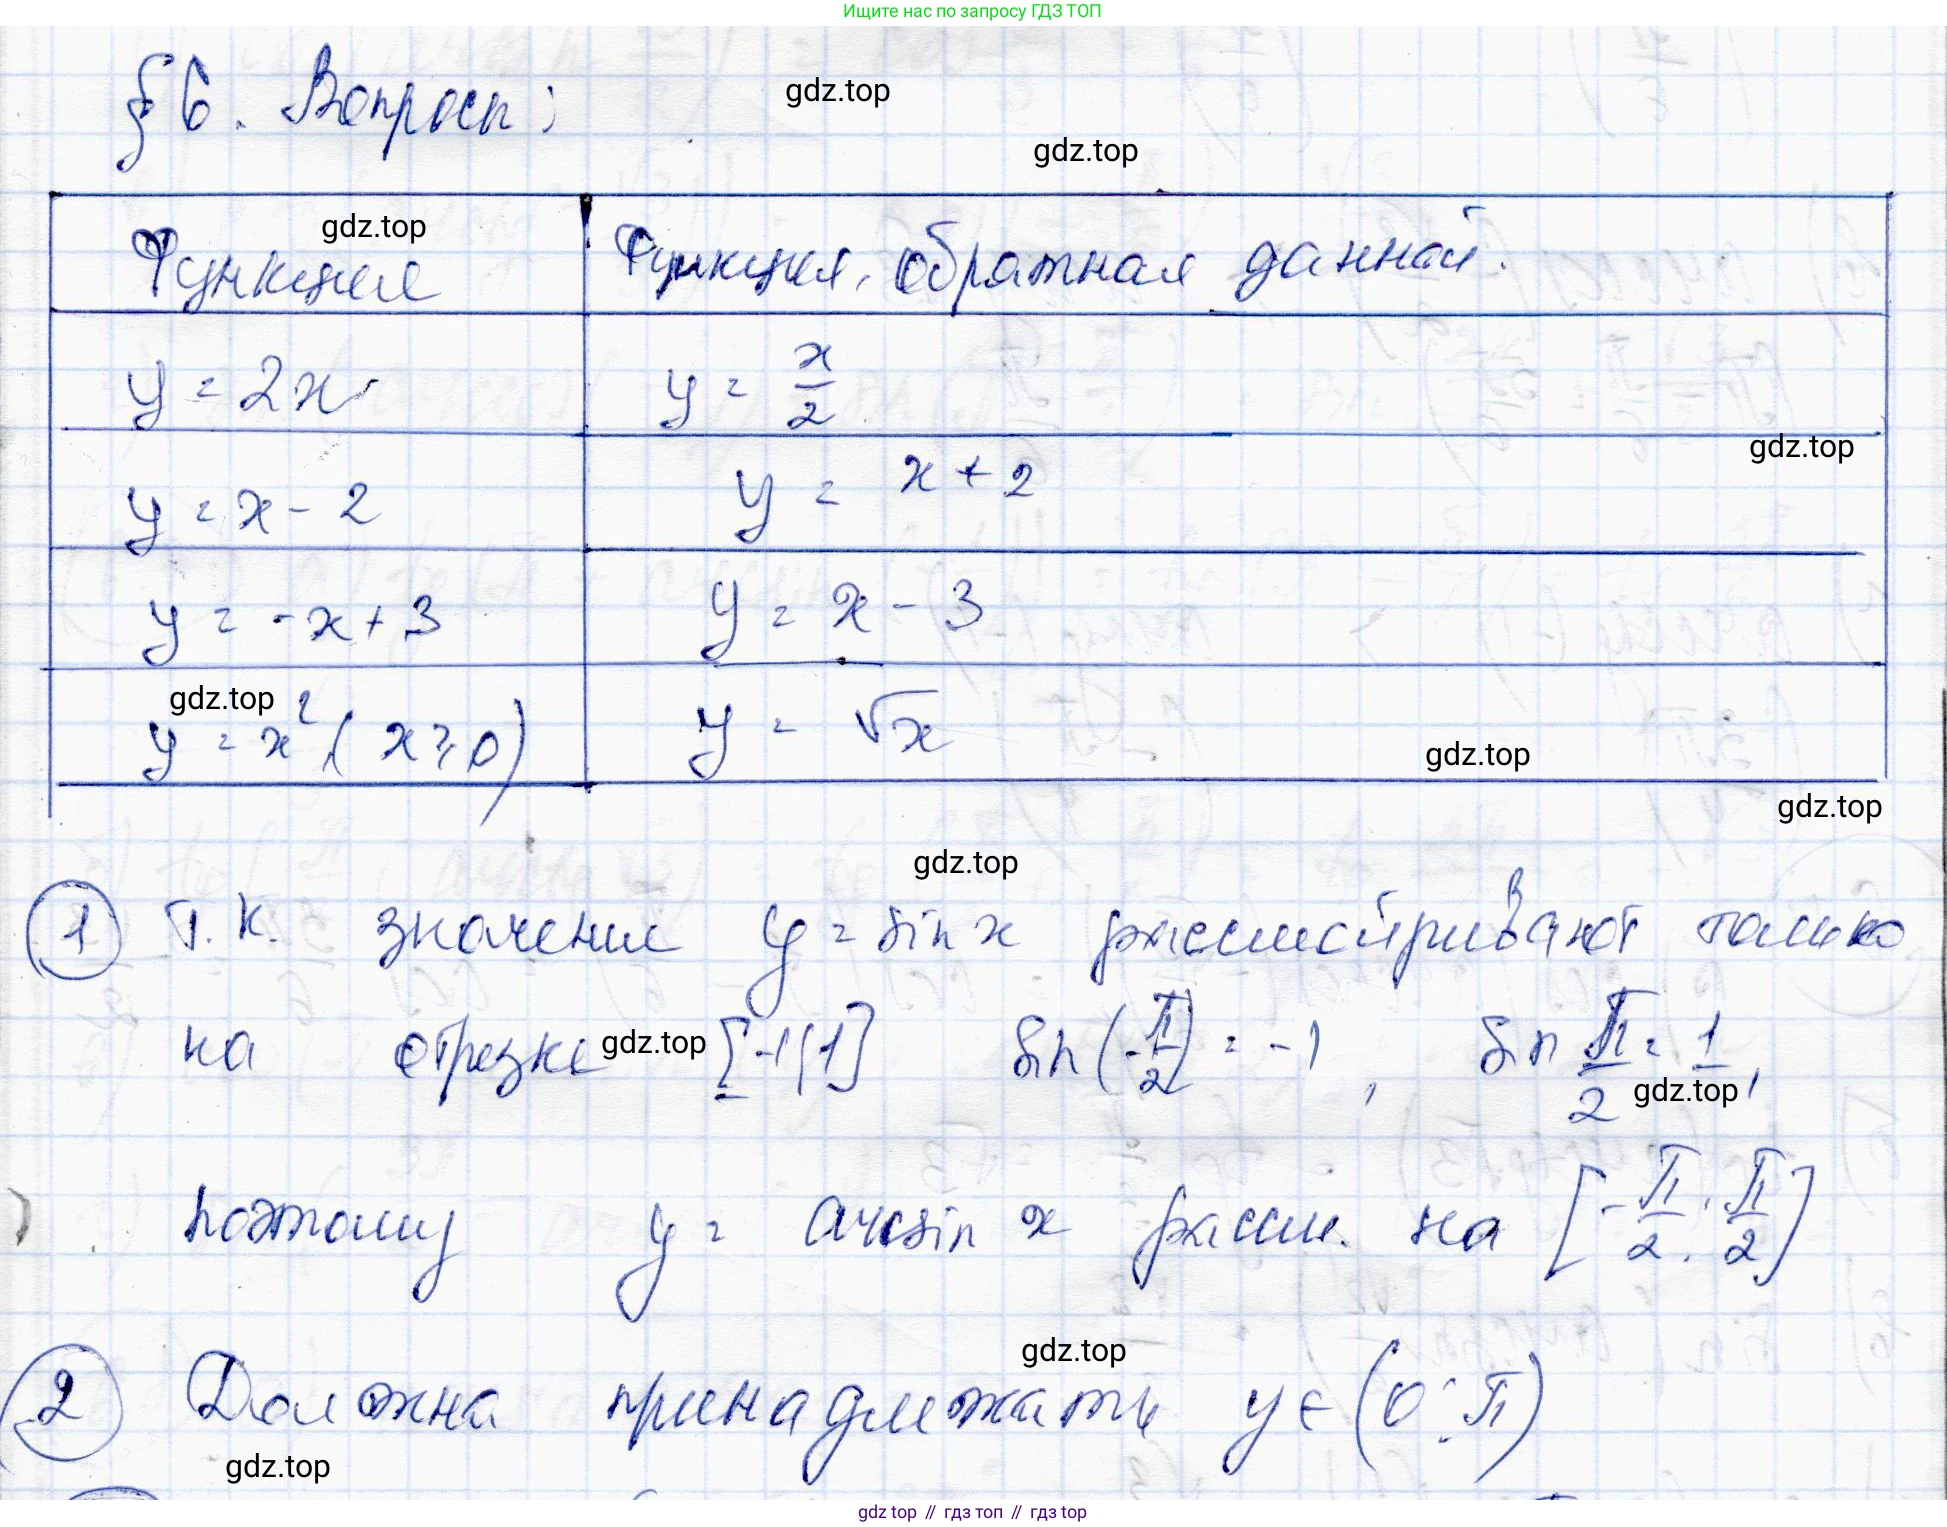 Ищите нас по запросу ГДЗ ТОП
§ 6. Вопросы:
gdz.top
gdz.top
gdz.top
Функция | Функция, обратная данной.
y = 2x | y = x/2
gdz.top
y = x - 2 | y = x + 2
y = -x + 3 | y = x - 3
gdz.top
y = x², (x ≥ 0) | y = √x
gdz.top
gdz.top
gdz.top
① т.к. значения y = sin x рассматривают только
на отрезке [-1;1] sin(-π/2) = -1, sin π/2 = 1,
gdz.top
gdz.top
поэтому y = arcsin x рассм. на [-π/2; π/2]
gdz.top
② Должна принадлежать y ∈ (0; π)
gdz.top
gdz top // гдз топ // гдз top